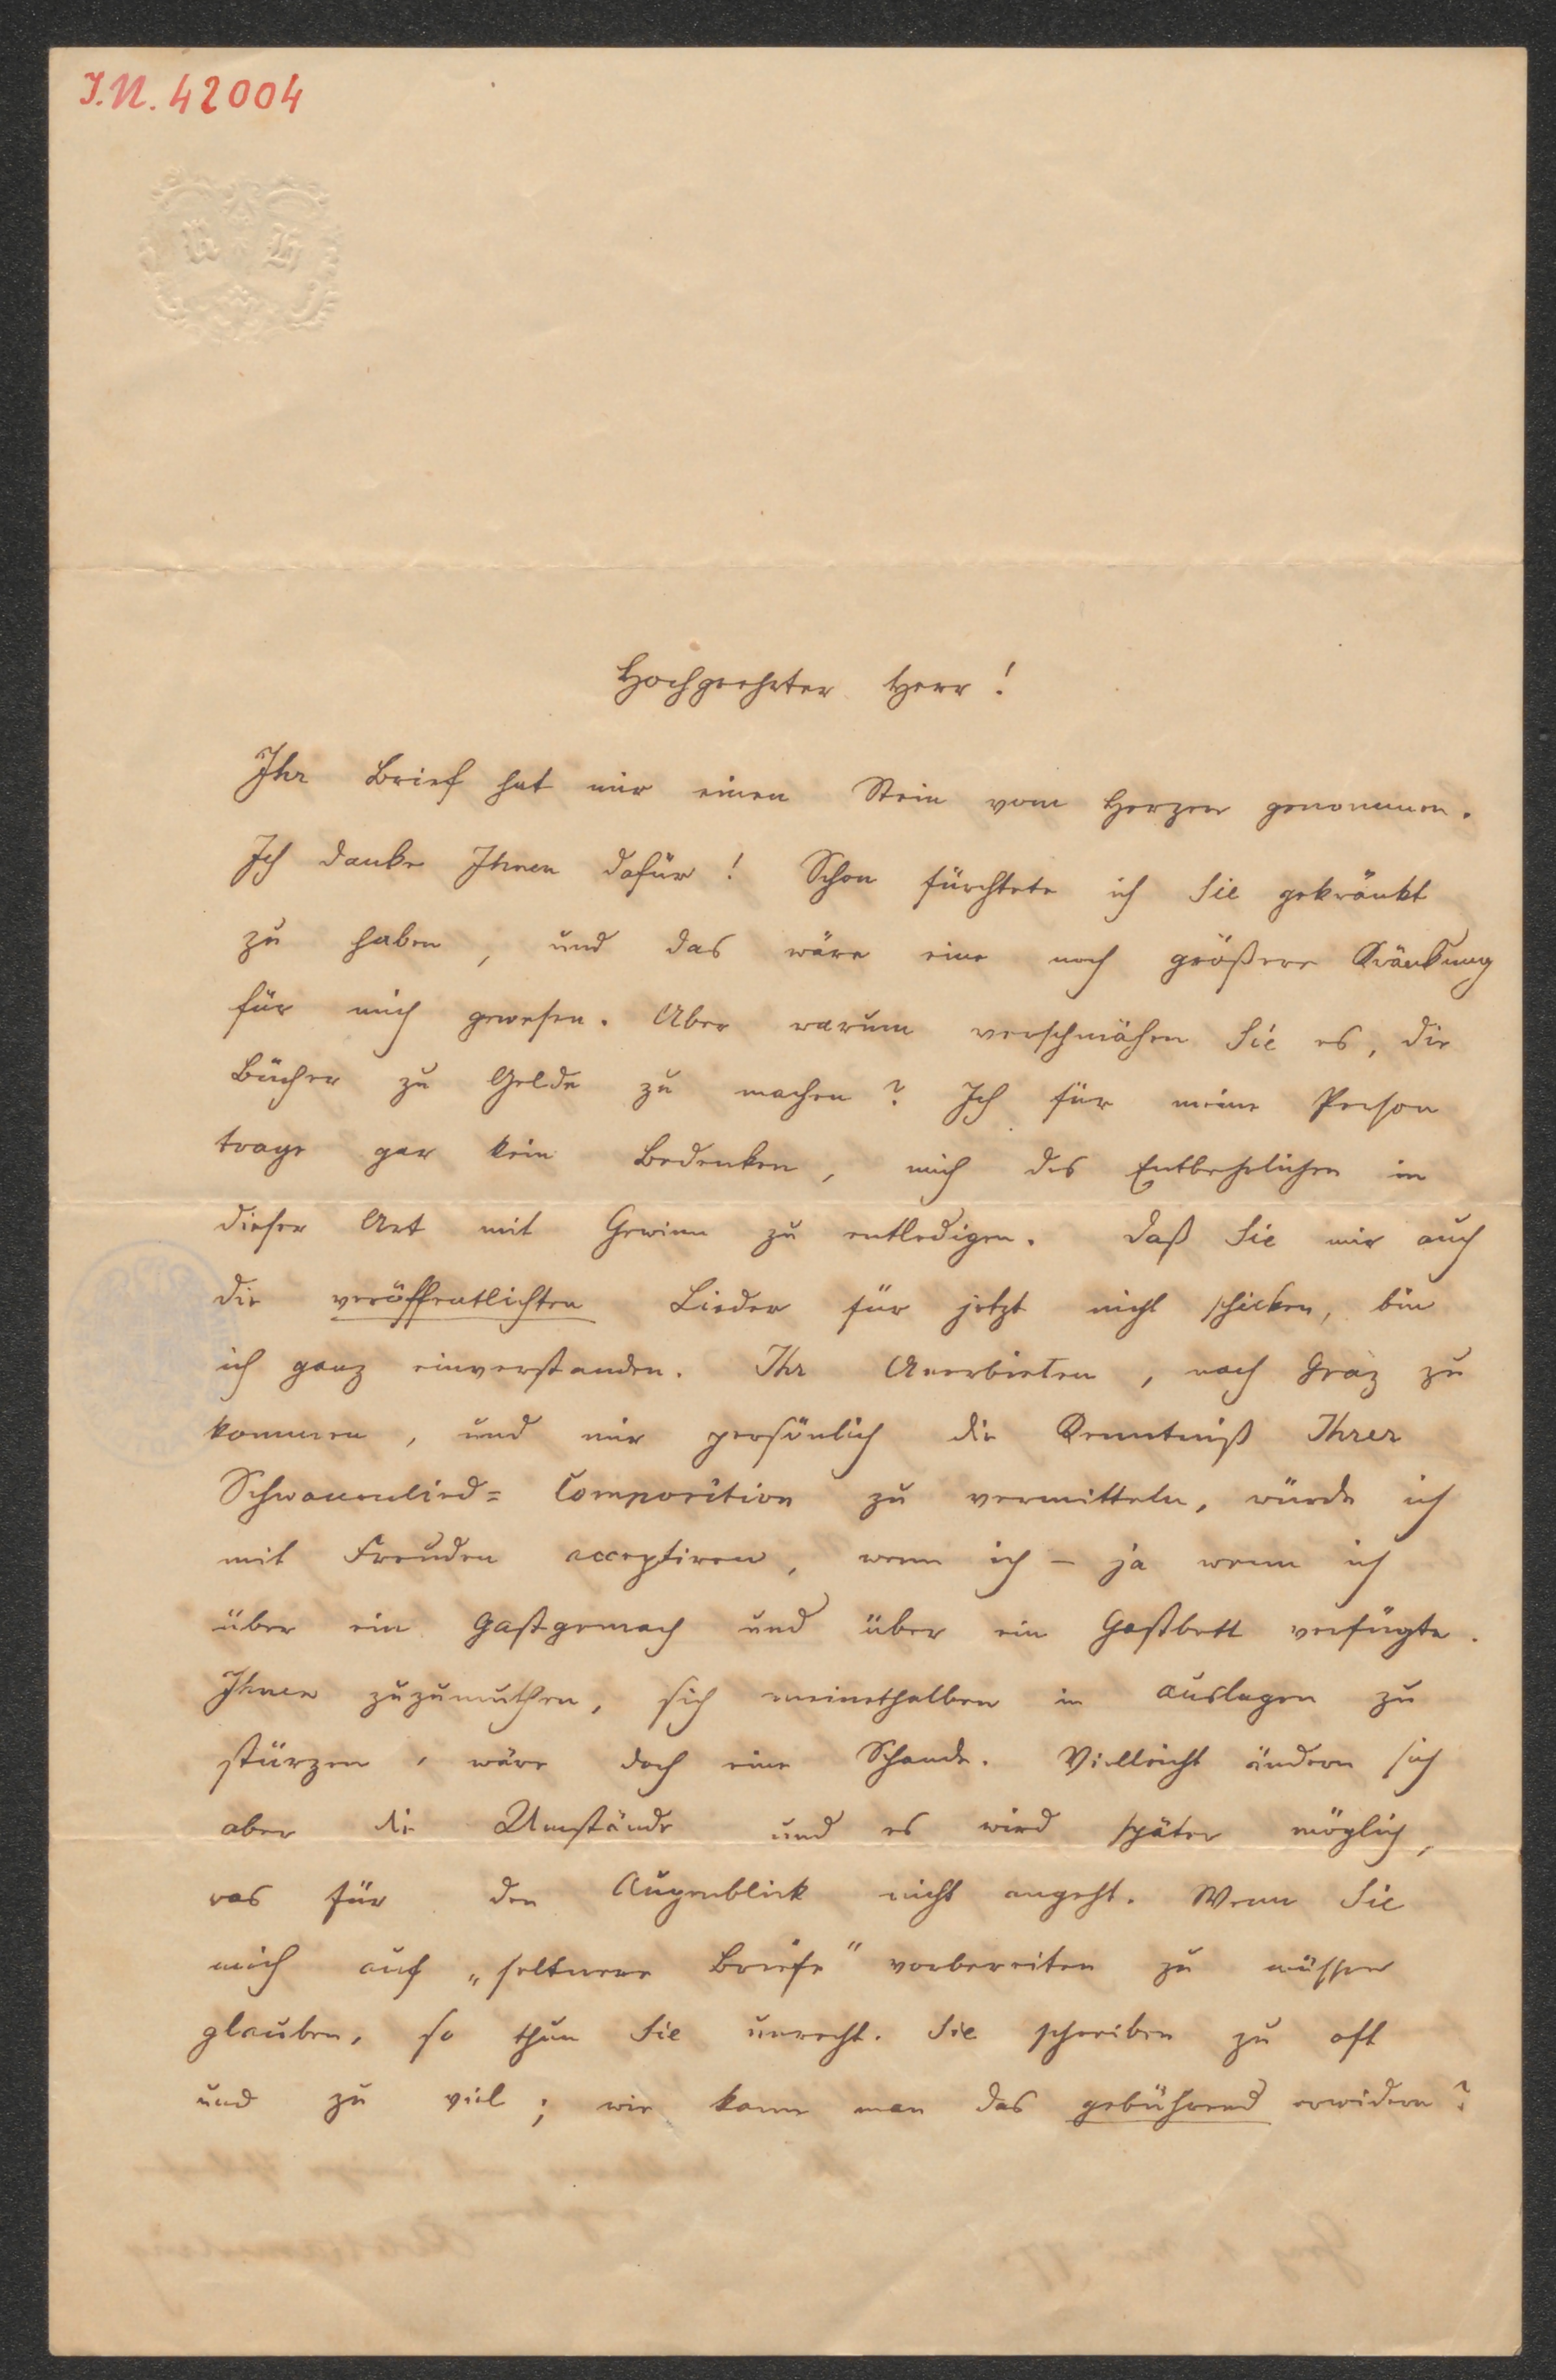 I.N. 42004
R H
Hochgeehrter Herr!
Ihr Brief hat mir einen Stein vom Herzen genommen.
Ich danke Ihnen dafür! Schon fürchtete ich Sie gekränkt
zu haben, und das wäre eine noch größere Kränkung
für mich gewesen. Aber warum verschmähen Sie es, die
Bücher zu Gelde zu machen? Ich für meine Person
trage gar kein Bedenken, mich des Entbehrlichen in
dieser Art mit Gewinn zu entledigen. Daß Sie mir auch
die veröffentlichten Lieder für jetzt nicht schicken, bin
ich ganz einverstanden. Ihr Anerbieten, nach Graz zu
kommen, und mir persönlich die Kenntniß Ihrer
Schwanenlied= Composition zu vermitteln, würde ich
mit Freuden acceptiren, wenn ich – ja wenn ich
über ein Gastgemach und über ein Gastbett verfügte.
Ihnen zuzumuthen, sich meinethalben in Auslagen zu
stürzen, wäre doch eine Schande. Vielleicht ändern sich
aber die Umstände und es wird später möglich,
was für den Augenblick nicht angeht. Wenn Sie
mich auf „seltnere Briefe" vorbereiten zu müssen
glauben, so thun Sie unrecht. Sie schreiben zu oft
und zu viel; wie kann man das gebührend erwidern?